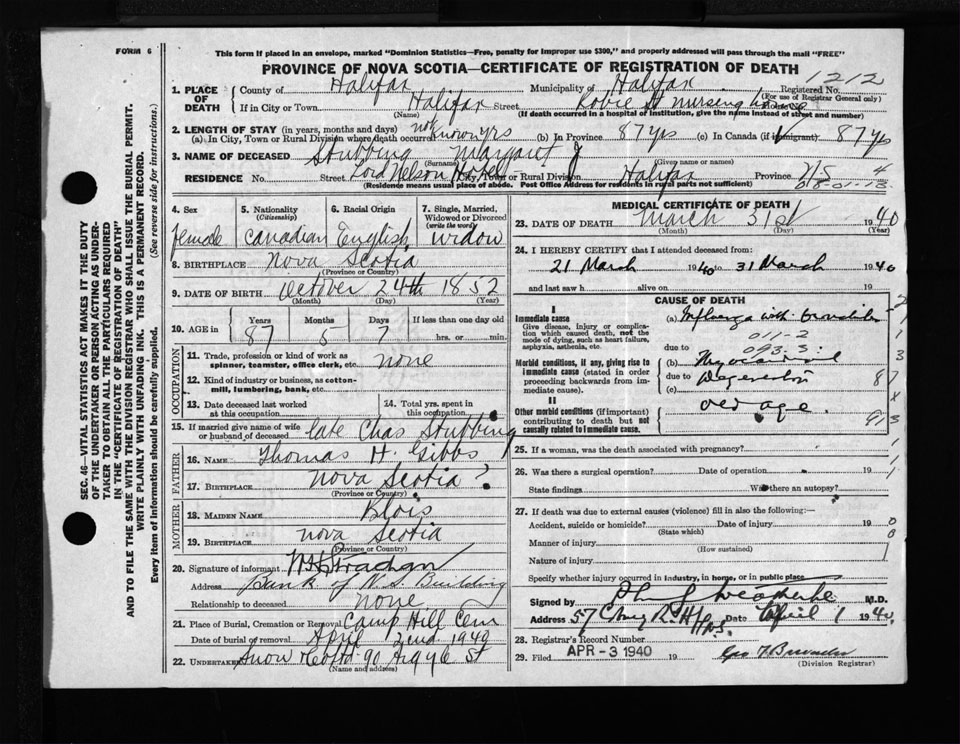 FORM 6
This form if placed in an envelope, marked "Dominion Statistics—Free, penalty for improper use $300," and properly addressed will pass through the mail "FREE"
PROVINCE OF NOVA SCOTIA—CERTIFICATE OF REGISTRATION OF DEATH
SEC. 46—VITAL STATISTICS ACT MAKES IT THE DUTY
OF THE UNDERTAKER OR PERSON ACTING AS UNDER-
TAKER TO OBTAIN ALL THE PARTICULARS REQUIRED
IN THE "CERTIFICATE OF REGISTRATION OF DEATH"
AND TO FILE THE SAME WITH THE DIVISION REGISTRAR WHO SHALL ISSUE THE BURIAL PERMIT.
WRITE PLAINLY WITH UNFADING INK. THIS IS A PERMANENT RECORD.
Every item of information should be carefully supplied. (See reverse side for instructions.)
1. PLACE OF DEATH County of Halifax Municipality of Halifax Registered No. 1212
(For use of Registrar General only)
If in City or Town Halifax Street Robie St nursing home
(Name) (If death occurred in a hospital or institution, give the name instead of street and number)
2. LENGTH OF STAY (in years, months and days)
(a) In City, Town or Rural Division where death occurred not known yrs (b) In Province 87 yrs (c) In Canada (if immigrant) 87 yrs
3. NAME OF DECEASED Stubbing Margaret J
(Surname) (Given name or names)
RESIDENCE No. Street Lord Nelson Hotel City, Town or Rural Division Halifax Province N S 4
(Residence means usual place of abode. Post Office Address for residents in rural parts not sufficient) 08-01-13
4. Sex 5. Nationality (Citizenship) 6. Racial Origin 7. Single, Married, Widowed or Divorced (write the word)
female Canadian English widow
8. BIRTHPLACE Nova Scotia
(Province or Country)
9. DATE OF BIRTH October 24th 1852
(Month) (Day) (Year)
10. AGE in Years Months Days If less than one day old
87 5 7 hrs. or min.
OCCUPATION
11. Trade, profession or kind of work as spinner, teamster, office clerk, etc. none
12. Kind of industry or business, as cotton-mill, lumbering, bank, etc.
13. Date deceased last worked at this occupation
14. Total yrs. spent in this occupation
15. If married give name of wife or husband of deceased late Chas Stubbing
FATHER
16. NAME Thomas H. Gibbs
17. BIRTHPLACE Nova Scotia?
(Province or Country)
MOTHER
18. MAIDEN NAME Blois
19. BIRTHPLACE nova Scotia
(Province or Country)
20. Signature of informant Strachan
Address Bank of N.S. Building
Relationship to deceased none
21. Place of Burial, Cremation or Removal Camp Hill Cem
Date of burial or removal April 2nd 1940
22. UNDERTAKER Snow & Co Ltd 90 Argyle St
(Name and address)
MEDICAL CERTIFICATE OF DEATH
23. DATE OF DEATH March 31st 1940
(Month) (Day) (Year)
24. I HEREBY CERTIFY that I attended deceased from:
21 March 1940 to 31 March 1940
and last saw h alive on 19
CAUSE OF DEATH
I
Immediate cause
Give disease, injury or complication which caused death, not the mode of dying, such as heart failure, asphyxia, asthenia, etc.
(a) Influenza with Bronchitis
011-2
due to 093.3
Morbid conditions, if any, giving rise to immediate cause (stated in order proceeding backwards from immediate cause).
(b) Myocardial
due to Degeneration
(c)
II
Other morbid conditions (if important) contributing to death but not causally related to immediate cause.
old age
25. If a woman, was the death associated with pregnancy?
26. Was there a surgical operation? Date of operation 19
State findings Was there an autopsy?
27. If death was due to external causes (violence) fill in also the following:—
Accident, suicide or homicide? Date of injury 19
(State which)
Manner of injury
(How sustained)
Nature of injury
Specify whether injury occurred in industry, in home, or in public place
Signed by M.D.
Address 57 Date April 1 1940
28. Registrar's Record Number
29. Filed APR -3 1940 19
(Division Registrar)